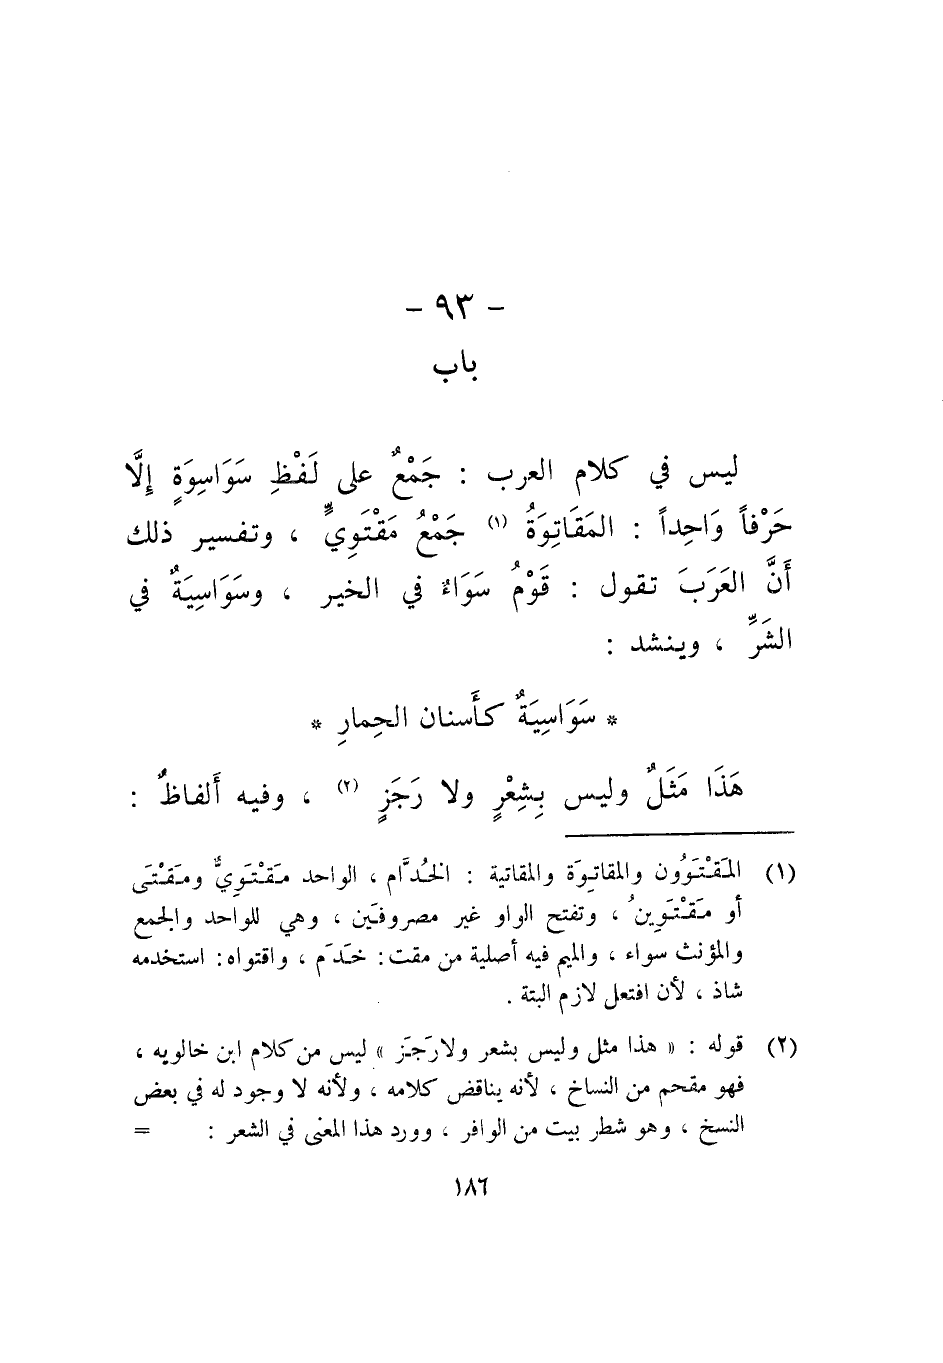 - ٩٣ -
باب
ليس في كلام العرب : جَمْعٌ على لَفْظِ سَوَاسِوَةٍ إِلَّا
حَرْفاً وَاحِداً : المَقَاتِوَةُ (١) جَمْعُ مَقْتَوِيٍّ ، وتفسير ذلك
أَنَّ العَرَبَ تقول : قَوْمُ سَوَاءٌ في الخير ، وسَوَاسِيَةٌ في
الشَرِّ ، وينشد :
* سَوَاسِيَةٌ كأَسنان الحِمارِ *
هَذَا مَثَلٌ وليس بِشِعْرٍ ولا رَجَزٍ (٢) ، وفيه أَلفاظٌ :
(١) المَقْتَوُون والمقاتِوَة والمقاتية : الخُدَّام ، الواحد مَقْتَوِيٌّ ومَقْتَى
أو مَقْتَوِينُ ، وتفتح الواو غير مصروفَين ، وهي للواحد والجمع
والمؤنث سواء ، والميم فيه أصلية من مقت : خَدَم ، واقتواه : استخدمه
شاذ ، لأن افتعل لازم البتة .
(٢) قوله : « هذا مثل وليس بشعر ولا رَجَز » ليس من كلام ابن خالويه ،
فهو مقحم من النساخ ، لأنه يناقض كلامه ، ولأنه لا وجود له في بعض
النسخ ، وهو شطر بيت من الوافر ، وورد هذا المعنى في الشعر : =
١٨٦